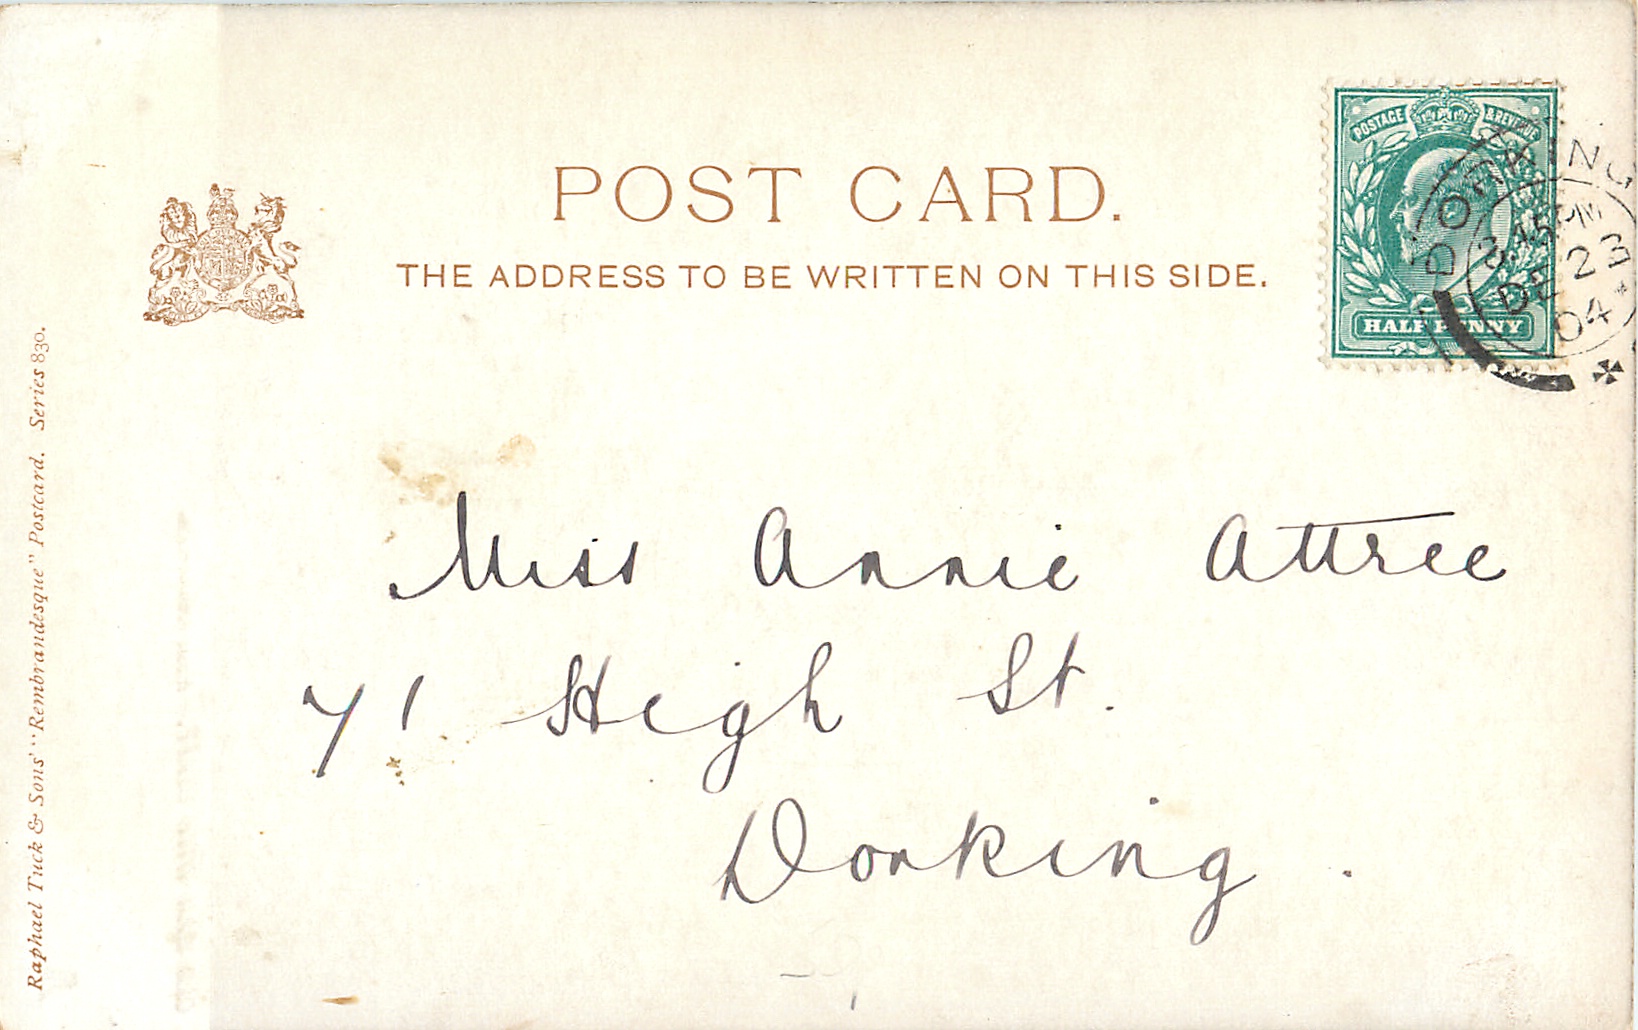 POST CARD.
THE ADDRESS TO BE WRITTEN ON THIS SIDE.
POSTAGE & REVENUE
HALF PENNY
DORKING
45 PM
DE 23
04
Miss Annie Attree
71 High St.
Dorking.
Raphael Tuck & Sons' "Rembrandesque" Postcard. Series 830.